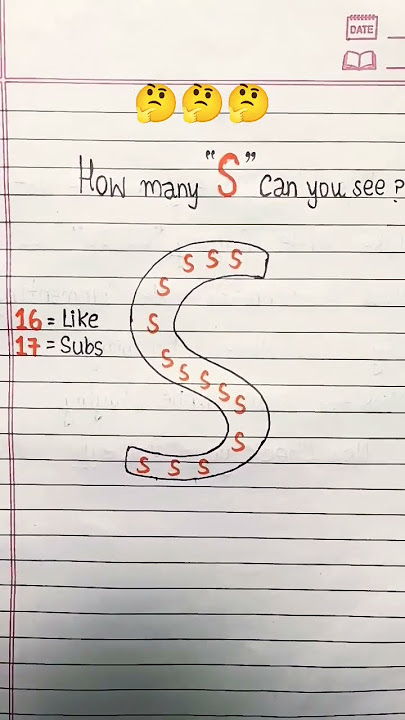 DATE
How many "S" can you see?
S S S
S
16 = Like
S
17 = Subs
S
S
S
S
S
S
S S S